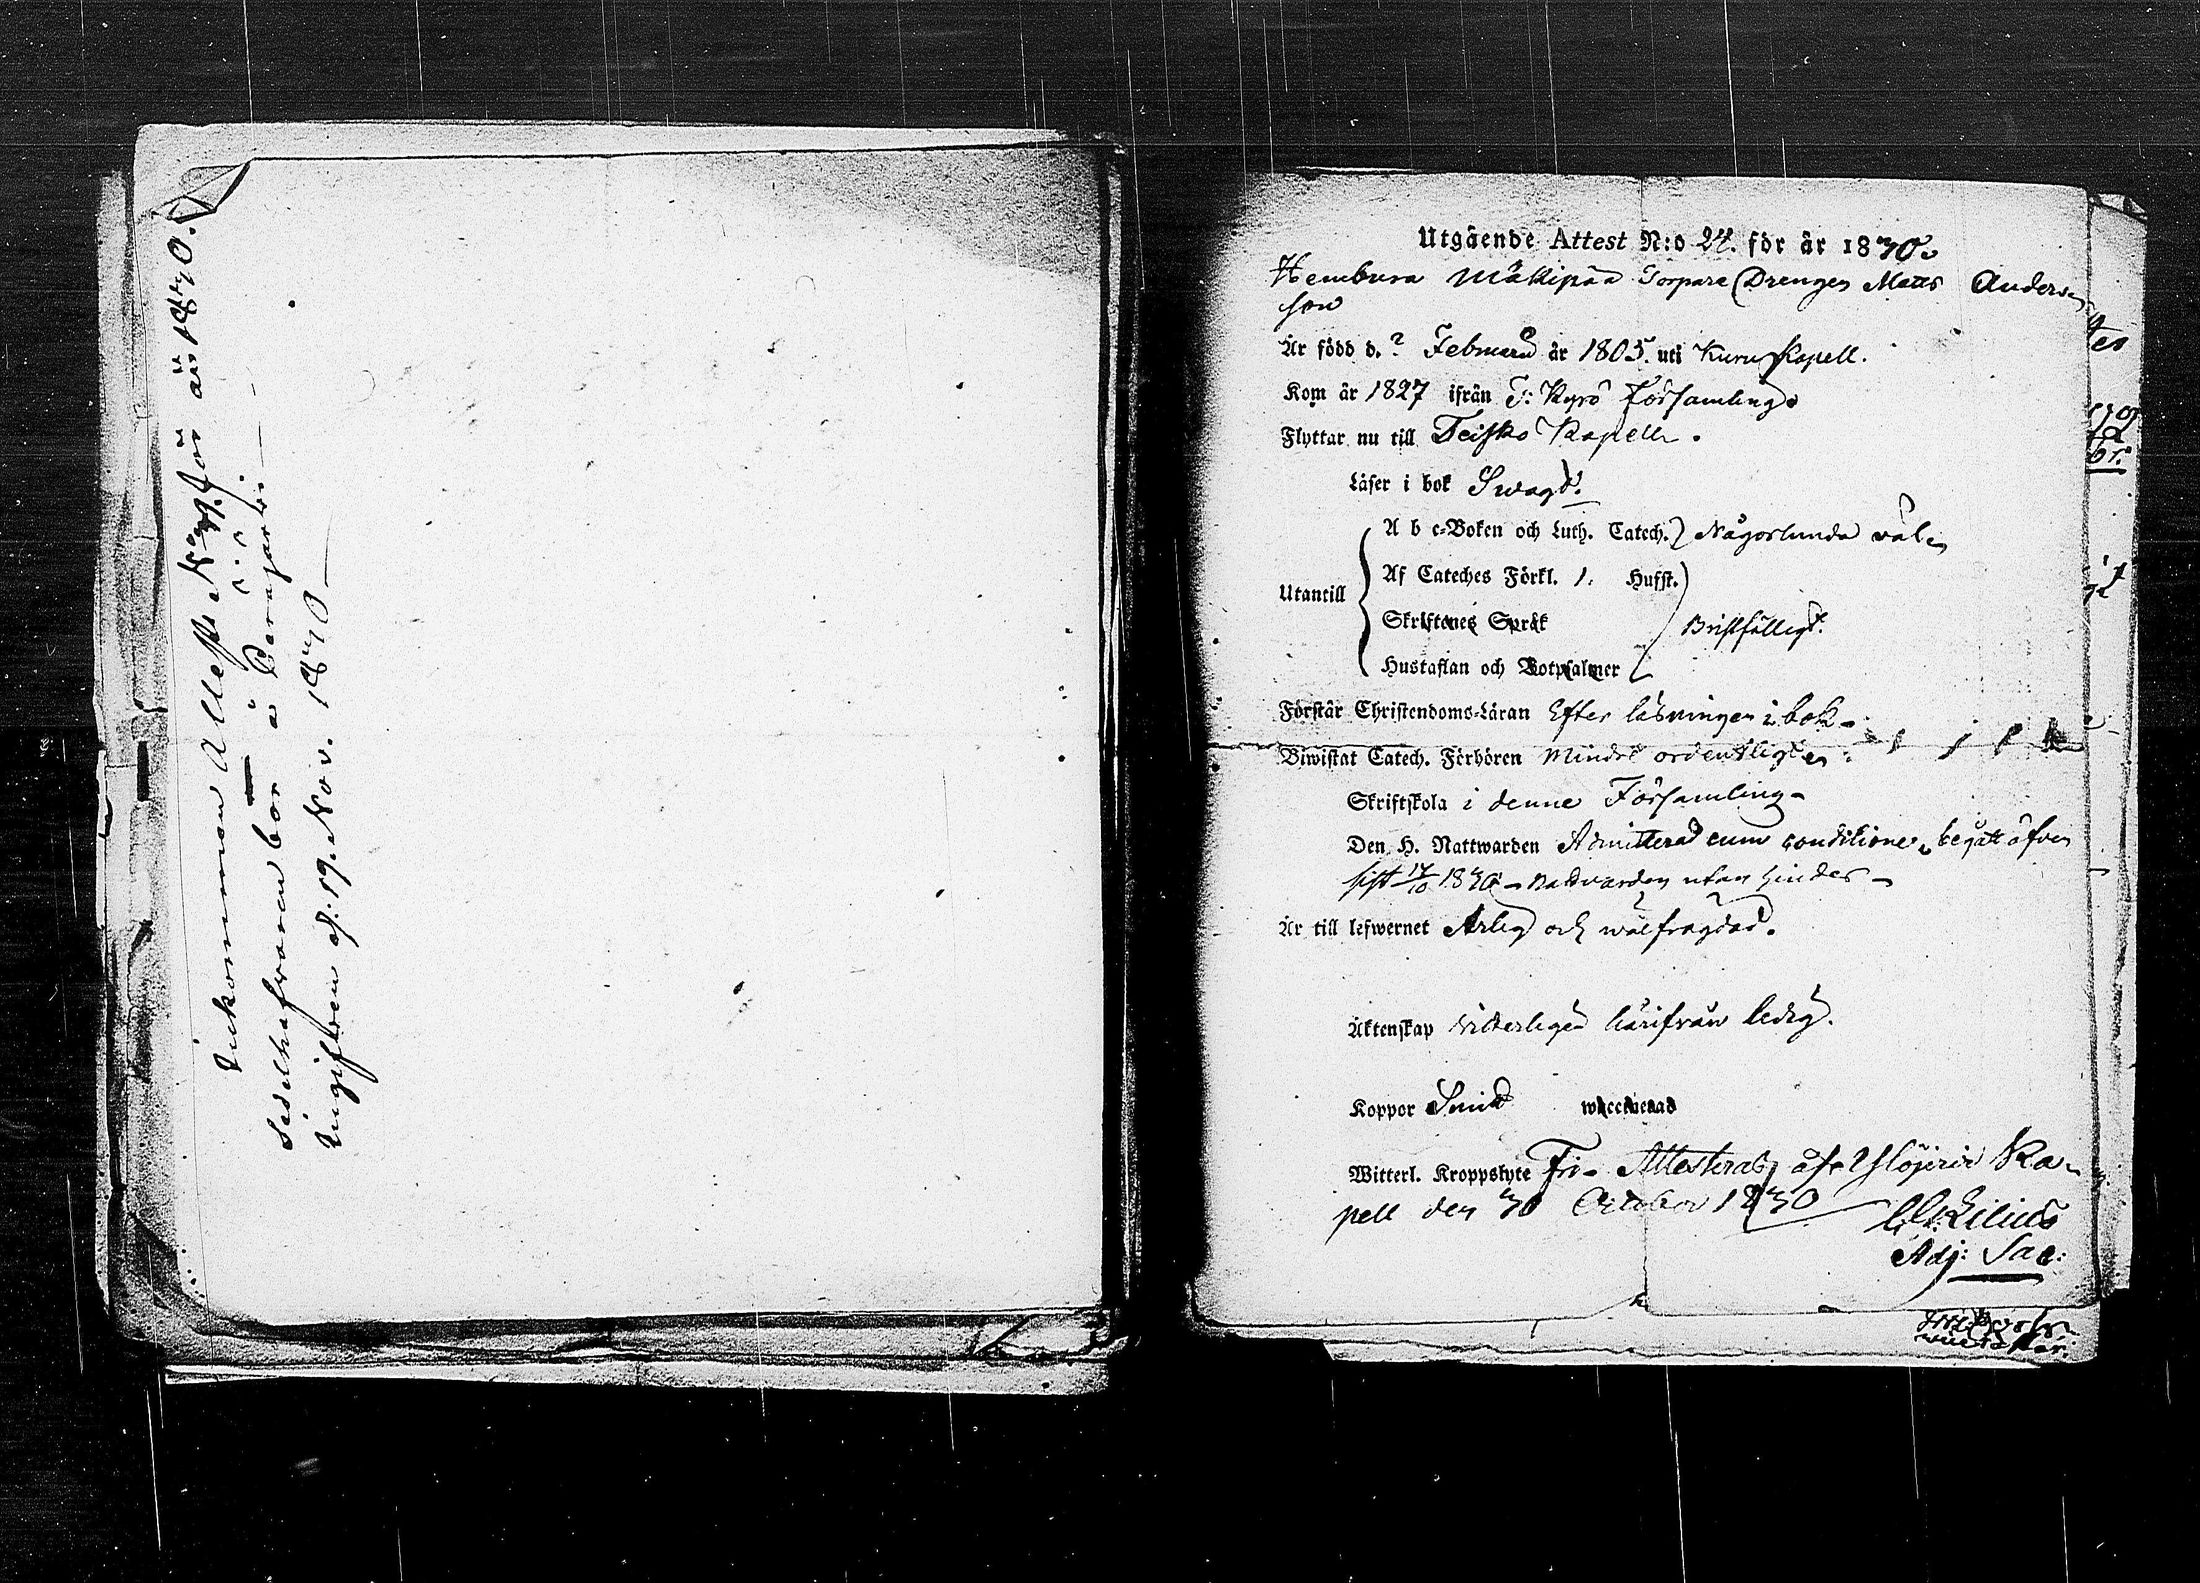 Inkommen Attest N:o för år 1830.
bor å Perajärvi
d. 19. Nov. 1830
Utgående Attest N:o 24. för år 1830.
Hembura Mäkipää Torpare Drengen Matts Anders-
son
Är född d. ? Februarii år 1805. uti Kuru Kapell.
Kom år 1827 ifrån T: Kyrö Församling.
Flyttar nu till Teisko Kapell.
Läser i bok Swagt.
Utantill
A b c-Boken och Luth. Catech. Någorlunda väl
Af Cateches Förkl. 1. Hufst.
Skriftenes Språk
Bristfälligt.
Hustaflan och Botpsalmer
Förstår Christendoms-Läran Efter läsningen i bok
Biwistat Catech. Förhören Mindre ordentligt
Skriftskola i denne Församling
Den H. Nattwarden Admitterad cum conditione, begått äfven
sist 17/10 1830 Nattvarden utan hinder
Är till lefwernet Ärlig och wälfrägdad.
Äktenskap härifrån ledig.
Koppor waccinerad
Witterl. Kroppslyte Fri Attesterar Ylöjervi Ka-
pell den 30 October 1830
Adj: Sac: